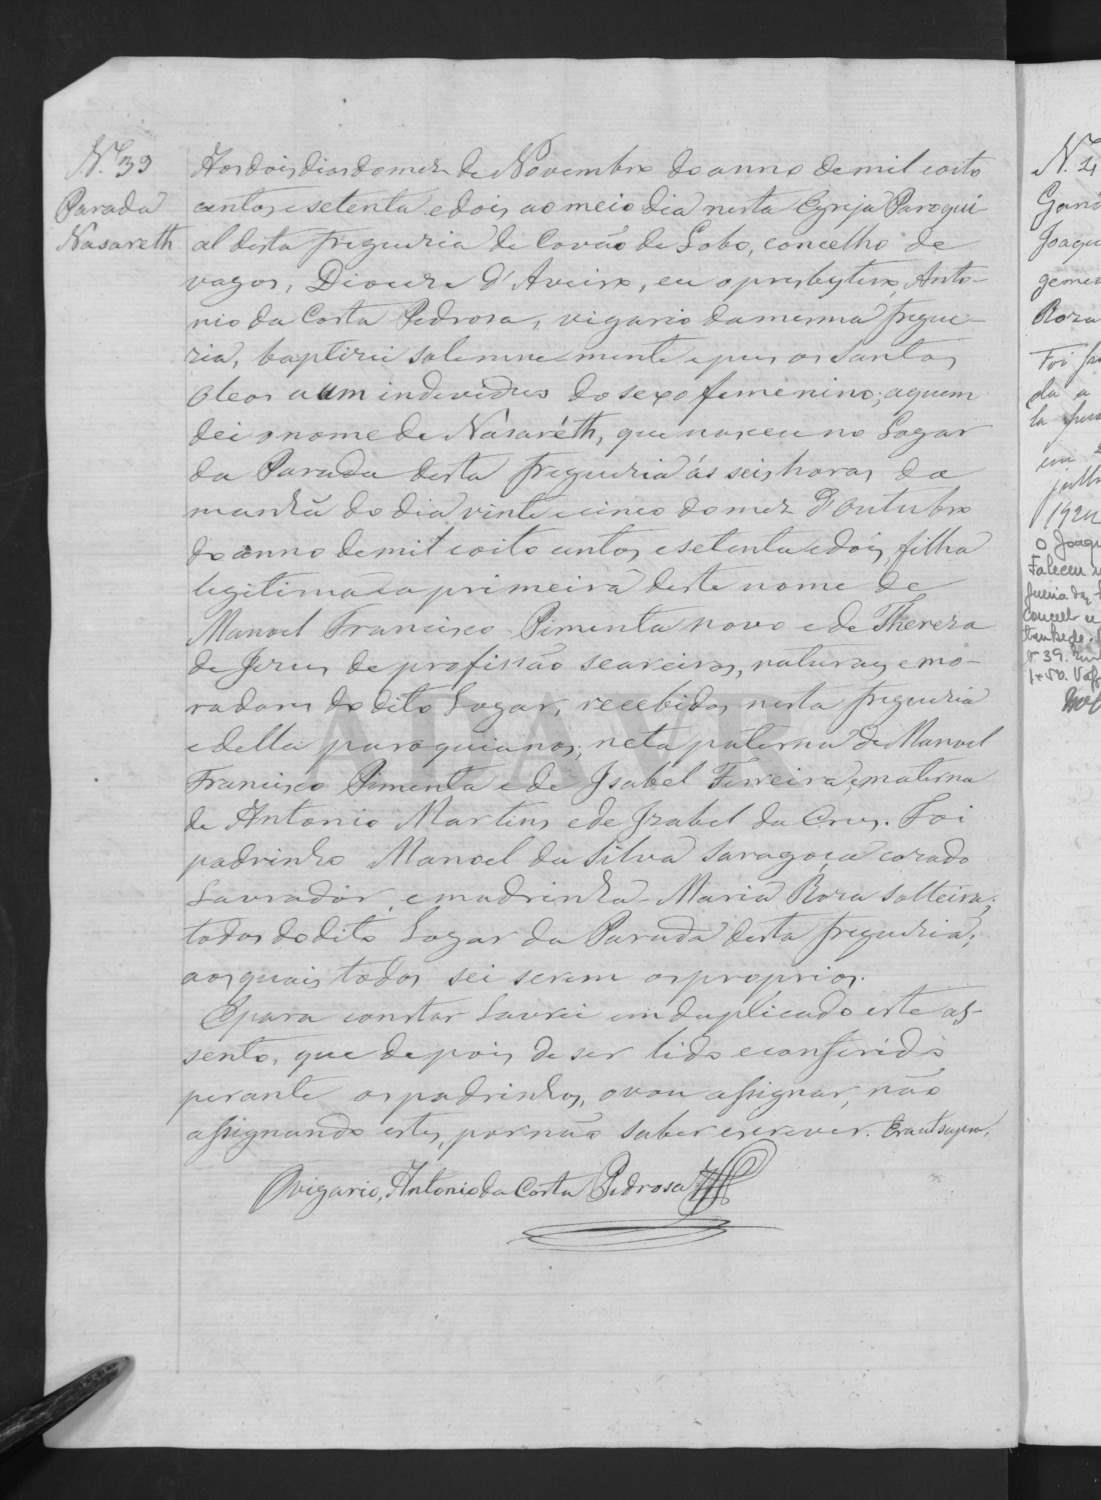 N.º 39
Parada
Nasareth
Aos dois dias do mez de Novembro do anno de mil e oito
centos e setenta e dois ao meio dia nesta Egreja Paroqui
al desta freguezia de Covão do Lobo, concelho de
vagos, Dioceze d'Aveiro, eu o presbytero, Anto-
nio da Costa Pedrosa, vigario da mesma fregue-
zia, baptizei solemnemente e pus os Santos
Oleos a um individuo do sexo femenino, a quem
dei o nome de Násaréth, que nasceu no Logar
da Parada desta freguezia ás seis horas da
manhã do dia vinte e cinco do mez d'outubro
do anno de mil e oito centos e setenta e dois, filha
legitima e a primeira deste nome de
Manoel Francisco Pimenta novo e de Thereza
de Jezus de profissão seareiros, naturaes e mo-
radores do dito Logar, recebidos nesta freguezia
e della paroquianos; neta paterna de Manoel
Francisco Pimenta e de Isabel Ferreira, e materna
de Antonio Martins e de Izabel da Crus. Foi
padrinho Manoel da Silva Saragoça cazado
Lavrador, e madrinha Maria Roza solteira,
todos do dito Logar da Parada desta freguezia,
aos quais todos sei serem os proprios.
E para constar Lavrei em duplicado este as-
sento, que depois de ser lido e conferido
perante os padrinhos, o vou assignar, não
assignando estes, por não saber escrever. Era ut supra.
O vigario, Antonio da Costa Pedrosa
N.º 4
Joaqu
gemeo
Roza
Foi
em
julh
192
o Joaqu
Faleceu
ALAVR